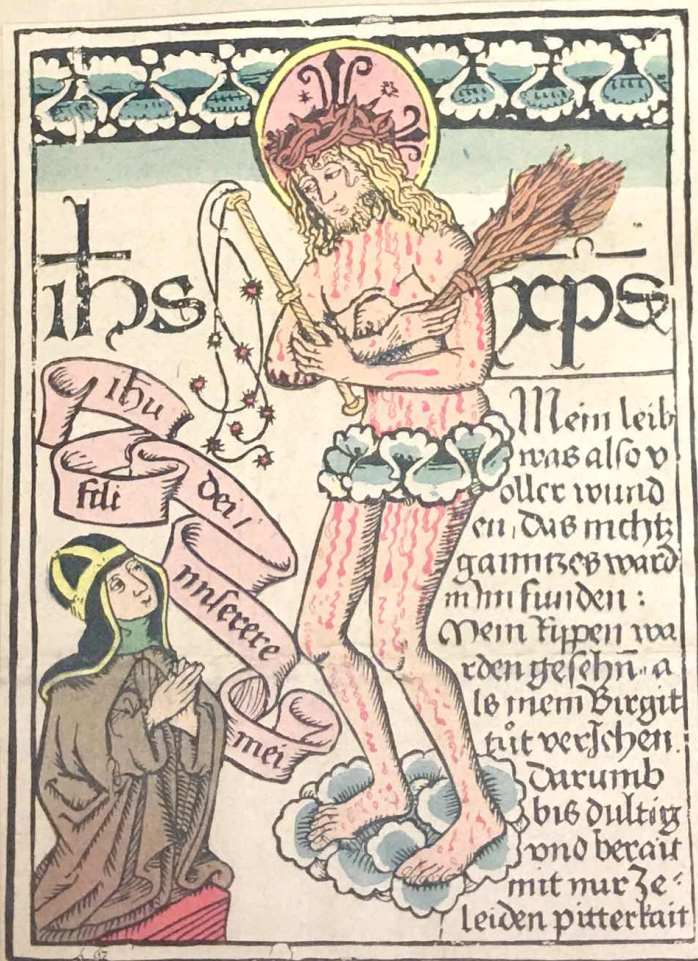 ihs
xps
ihu
fili
dei/
miserere
mei
Mein leib
was also v
oller wund
en, das nichtz
ganntzes ward
in im funden :
Mein rippen wa
rden gesehn a
ls mein Birgit
tut verJehen.
Darumb
bis dultig
vnd berait
mit mir ze
leiden pitterkait